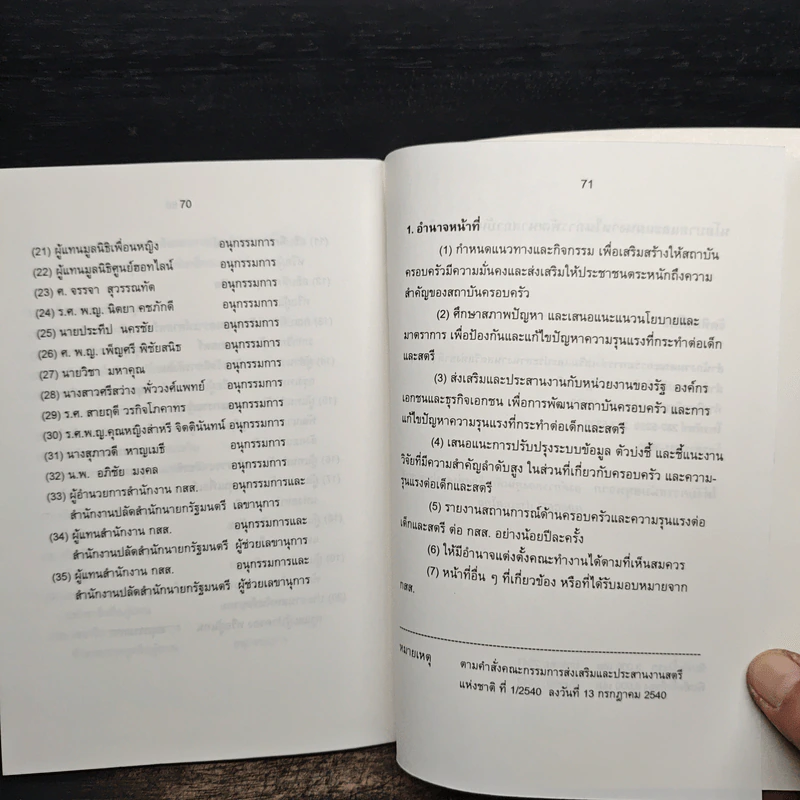 70
(21) ผู้แทนมูลนิธิเพื่อนหญิง อนุกรรมการ
(22) ผู้แทนมูลนิธิศูนย์ฮอทไลน์ อนุกรรมการ
(23) ศ. จรรจา สุวรรณทัต อนุกรรมการ
(24) ร.ศ. พ.ญ. นิตยา คชภักดี อนุกรรมการ
(25) นายประทีป นครชัย อนุกรรมการ
(26) ศ. พ.ญ. เพ็ญศรี พิชัยสนิธ อนุกรรมการ
(27) นายวิชา มหาคุณ อนุกรรมการ
(28) นางสาวศรีสว่าง พั่ววงศ์แพทย์ อนุกรรมการ
(29) ร.ศ. สายฤดี วรกิจโภคาทร อนุกรรมการ
(30) ร.ศ.พ.ญ.คุณหญิงส่าหรี จิตตินันทน์ อนุกรรมการ
(31) นางสุภาวดี หาญเมธี อนุกรรมการ
(32) น.พ. อภิชัย มงคล อนุกรรมการ
(33) ผู้อำนวยการสำนักงาน กสส. อนุกรรมการและ
สำนักงานปลัดสำนักนายกรัฐมนตรี เลขานุการ
(34) ผู้แทนสำนักงาน กสส. อนุกรรมการและ
สำนักงานปลัดสำนักนายกรัฐมนตรี ผู้ช่วยเลขานุการ
(35) ผู้แทนสำนักงาน กสส. อนุกรรมการและ
สำนักงานปลัดสำนักนายกรัฐมนตรี ผู้ช่วยเลขานุการ
71
1. อำนาจหน้าที่
(1) กำหนดแนวทางและกิจกรรม เพื่อเสริมสร้างให้สถาบัน
ครอบครัวมีความมั่นคงและส่งเสริมให้ประชาชนตระหนักถึงความ
สำคัญของสถาบันครอบครัว
(2) ศึกษาสภาพปัญหา และเสนอแนะแนวนโยบายและ
มาตราการ เพื่อป้องกันและแก้ไขปัญหาความรุนแรงที่กระทำต่อเด็ก
และสตรี
(3) ส่งเสริมและประสานงานกับหน่วยงานของรัฐ องค์กร
เอกชนและธุรกิจเอกชน เพื่อการพัฒนาสถาบันครอบครัว และการ
แก้ไขปัญหาความรุนแรงที่กระทำต่อเด็กและสตรี
(4) เสนอแนะการปรับปรุงระบบข้อมูล ตัวบ่งชี้ และชี้แนะงาน
วิจัยที่มีความสำคัญลำดับสูง ในส่วนที่เกี่ยวกับครอบครัว และความ-
รุนแรงต่อเด็กและสตรี
(5) รายงานสถานการณ์ด้านครอบครัวและความรุนแรงต่อ
เด็กและสตรี ต่อ กสส. อย่างน้อยปีละครั้ง
(6) ให้มีอำนาจแต่งตั้งคณะทำงานได้ตามที่เห็นสมควร
(7) หน้าที่อื่น ๆ ที่เกี่ยวข้อง หรือที่ได้รับมอบหมายจาก
กสส.
หมายเหตุ ตามคำสั่งคณะกรรมการส่งเสริมและประสานงานสตรี
แห่งชาติ ที่ 1/2540 ลงวันที่ 13 กรกฎาคม 2540